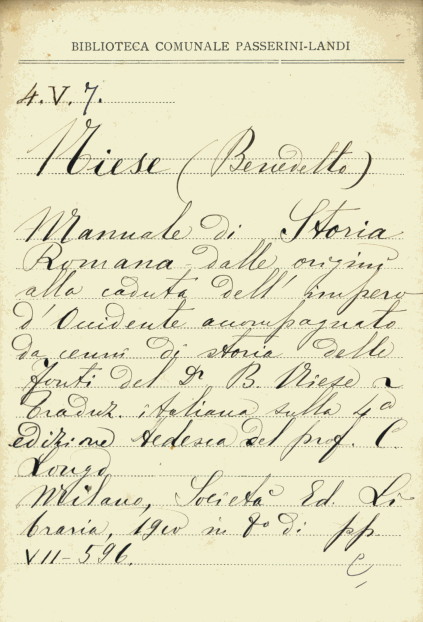 BIBLIOTECA COMUNALE PASSERINI-LANDI
4. V. 7.
Niese (Benedetto)
Manuale di Storia
Romana dalle origini
alla caduta dell' impero
d'Occidente accompagnato
da cenni di storia delle
fonti del Dr B. Niese ~
Traduz. italiana sulla 4a
edizione tedesca del prof. C
Longo
Milano, Società Ed. Li
braria, 1910 in 8o di pp.
VII-596.